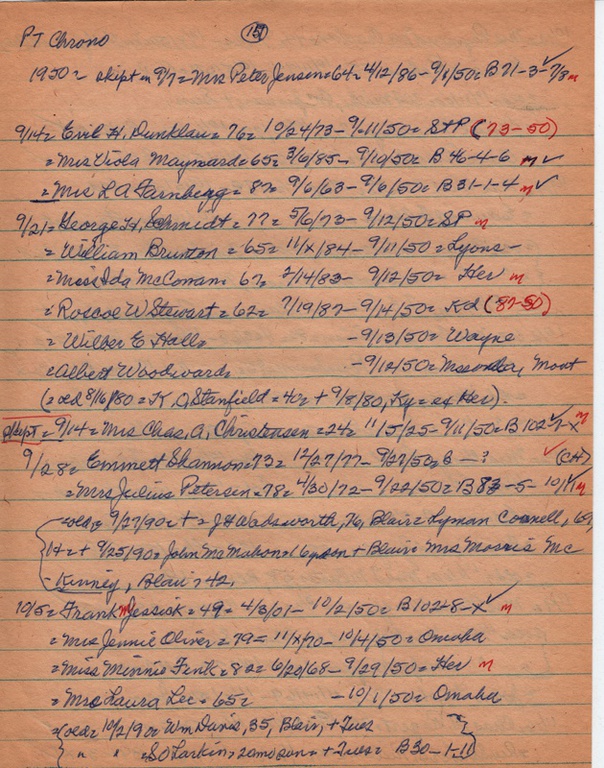 PT Chrono 15
1950 = skipt in 9/7 = Mrs Peter Jensen = 64 = 4/12/86 - 9/1/50 = B 71-3- 7/8 m
9/14 = Emil H. Dunklau = 76 = 10/24/73 - 9/11/50 = StP (73-50)
= Mrs Viola Maynard = 65 = 3/6/85 - 9/10/50 = B 46-4-6 m ✓
= Mrs L A Farnberg = 87 = 9/6/63 - 9/6/50 = B 31-1-4 m ✓
9/21 = George H. Schmidt = 77 = 5/6/73 - 9/12/50 = SP m
= William Brunton = 65 = 11/x/84 - 9/11/50 = Lyons -
= Miss Ida McComam = 67 = 2/14/83 - 9/12/50 = Her m
= Roscoe W Stewart = 62 = 7/19/87 - 9/14/50 = Kd (87-50)
= Wilber E Hall = - 9/13/50 = Wayne
= Albert Woodward = - 9/12/50 = Mont
(= oed 8/16/80 = K. O. Stanfield = 40 = + 9/8/80, Ky = ex Her).
skipt = 9/14 = Mrs Chas, A, Christensen = 24 = 11/5/25 - 9/11/50 = B 102 ✓ 7-X m
9/28 = Emmett Shannon = 73 = 12/27/77 - 9/21/50 = B - ? ✓ (CH)
= Mrs Julius Petersen = 78 = 4/30/72 - 9/22/50 = B 83 - 5 - m
= oed = 9/27/90 = + = J H Wadsworth, 76, Blair = Lyman Connell, 69,
14 = + 9/25/90 = John McMahon = 16 y son + Blair = Mrs Morris Mc
- Kinney, Blair = 42,
10/5 = Frank m Jessick = 49 = 4/3/01 - 10/2/50 = B 102 = 8-X ✓ m
= Mrs Jennie Oliver = 79 = 11/x/70 - 10/4/50 = Omaha
= Miss Minnie Fink = 82 = 6/20/68 - 9/29/50 = Her m
= Mrs Laura Lee = 65 = - 10/1/50 = Omaha
= (oed = 10/2/90 = Wm Davis, 35, Blair, + Tues
" " = S O Larkin, 20 mo son = + Tues = B 30-1-11)